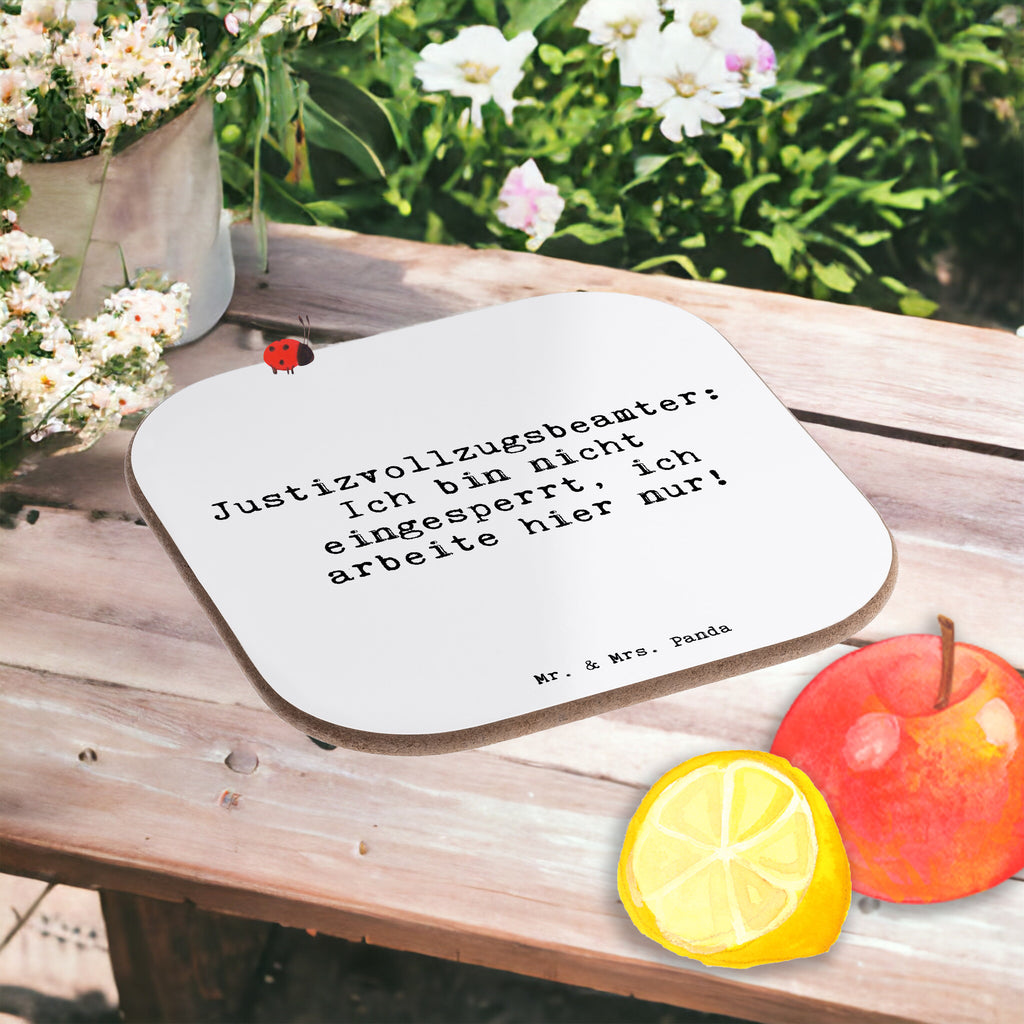 Justizvollzugsbeamter:
Ich bin nicht
eingesperrt, ich
arbeite hier nur!
Mr. & Mrs. Panda